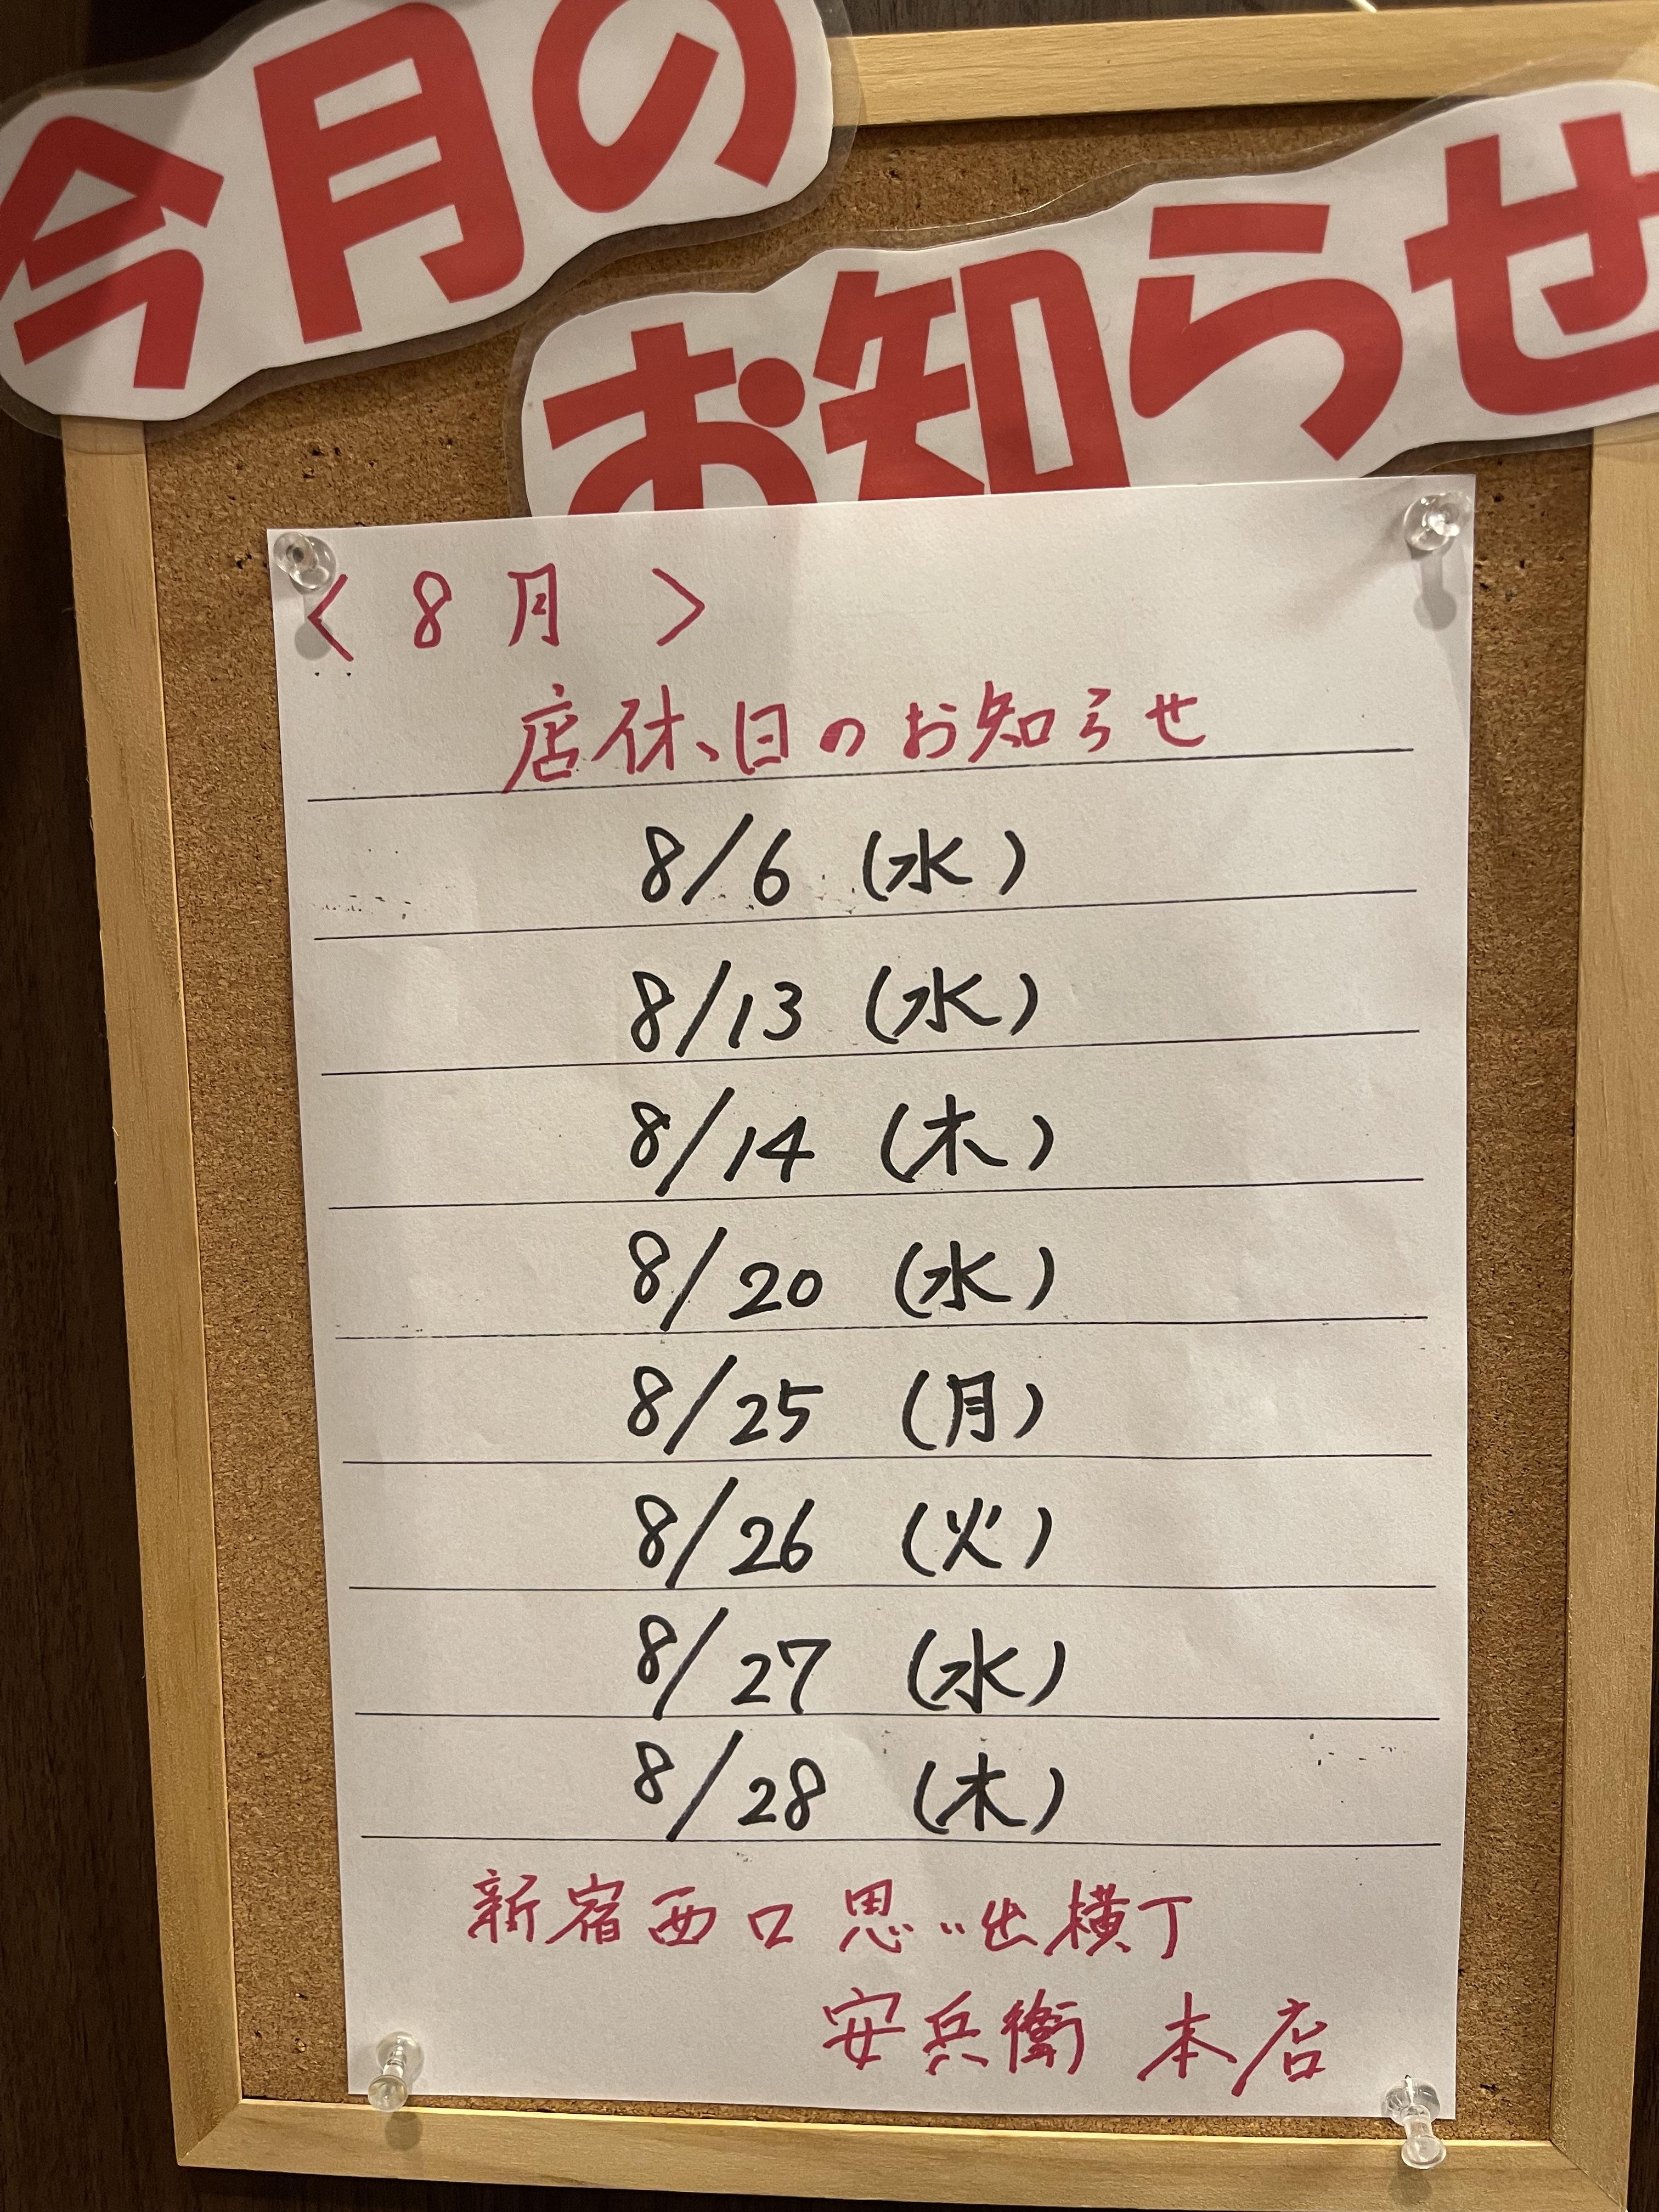 今月の
お知らせ
<8月>
店休日のお知らせ
8/6 (水)
8/13 (水)
8/14 (木)
8/20 (水)
8/25 (月)
8/26 (火)
8/27 (水)
8/28 (木)
新宿西口思い出横丁
安兵衛 本店